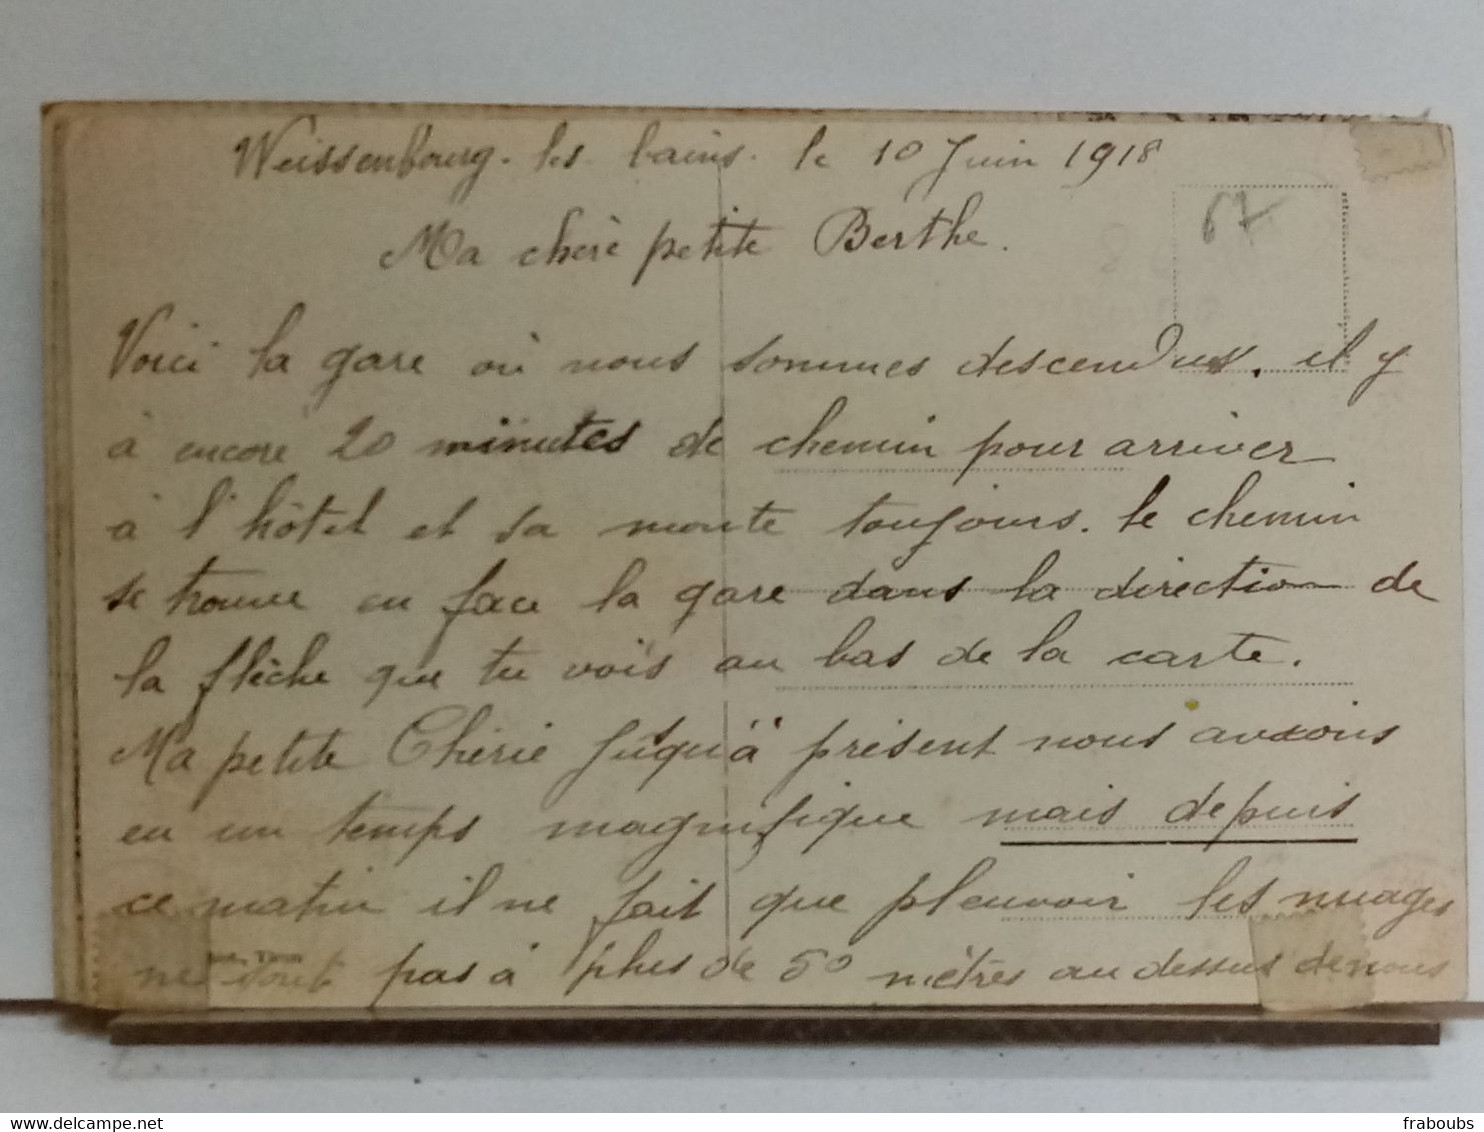 Weissenbourg. les bains. le 10 Juin 1918
67
Ma chère petite Berthe.
Voici la gare où nous sommes descendus. il y
à encore 20 minutes de chemin pour arriver
à l'hôtel et sa monte toujours. le chemin
se trouve en face la gare dans la direction de
la flèche que tu vois au bas de la carte.
Ma petite Chérie jusqu'à présent nous avions
eu un temps magnifique mais depuis
ce matin il ne fait que pleuvoir les nuages
ne sont pas à plus de 50 mètres au dessus de nous
fraboubs